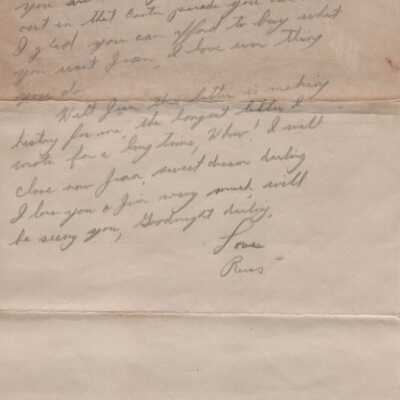 you
cost in that Easter parade you
I glad you can afford to buy what
you want Jean, I love every thing
you do.
Well Jean this letter is making
history for me, the longest letter I
wrote for a long time, Whew! I will
close now Jean, sweet dream darling
I love you & Jim very much, will
be seeing you, Goodnight darling,
Love
Russ